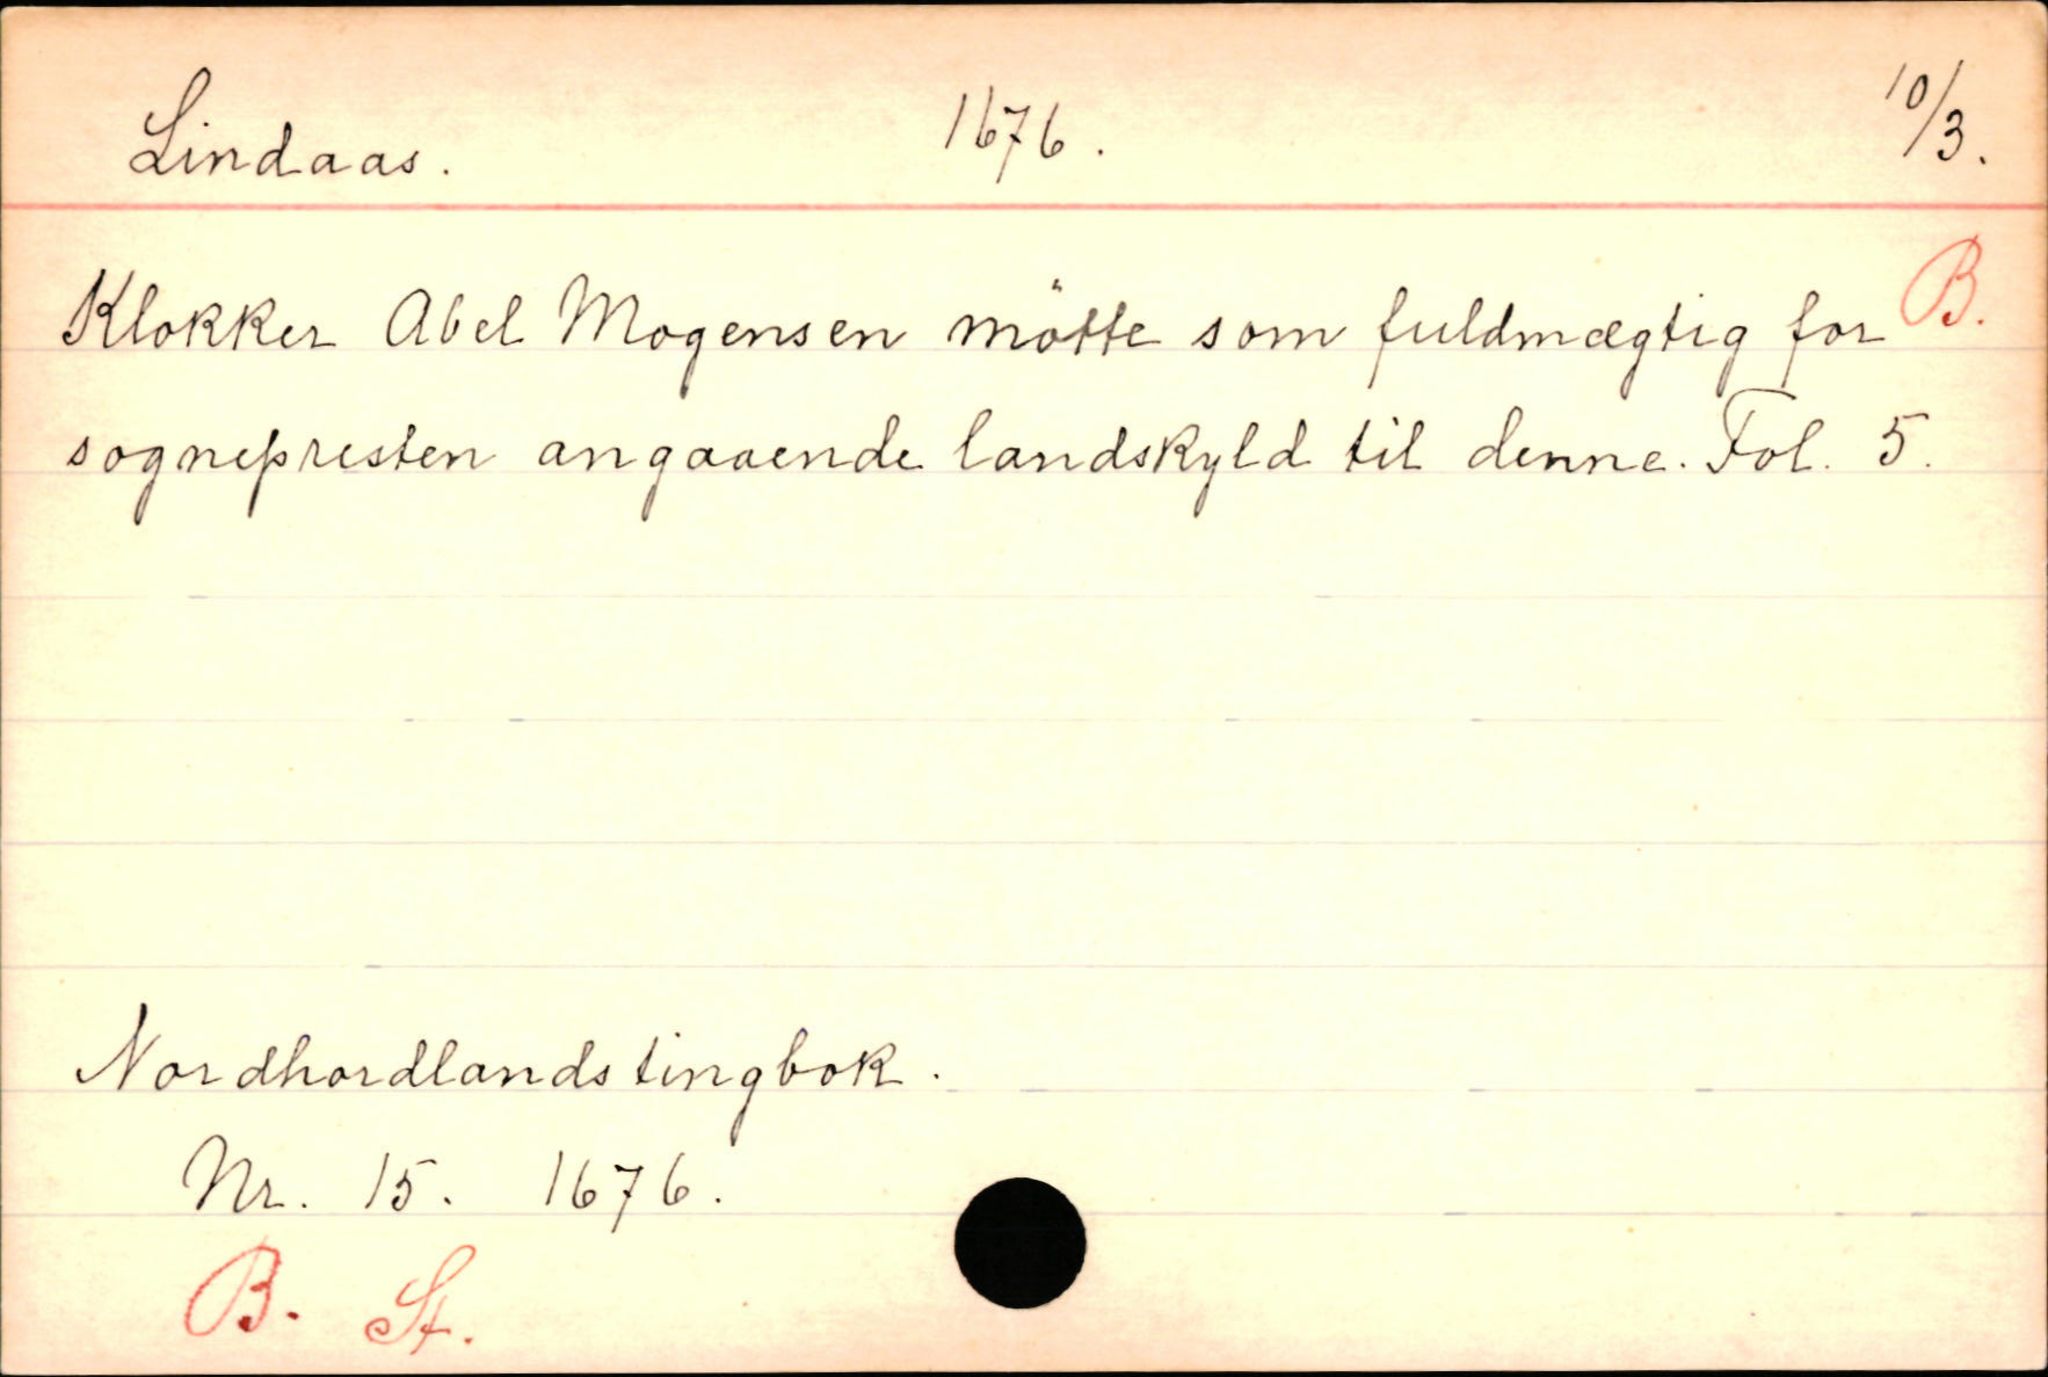 Lindaas. 1676. 10/3.
B.
Klokker Abel Mogensen mötte som fuldmægtig for
sognepresten angaaende landskyld til denne. Fol. 5.
Nordhordlands tingbok.
Nr. 15. 1676.
B. St.